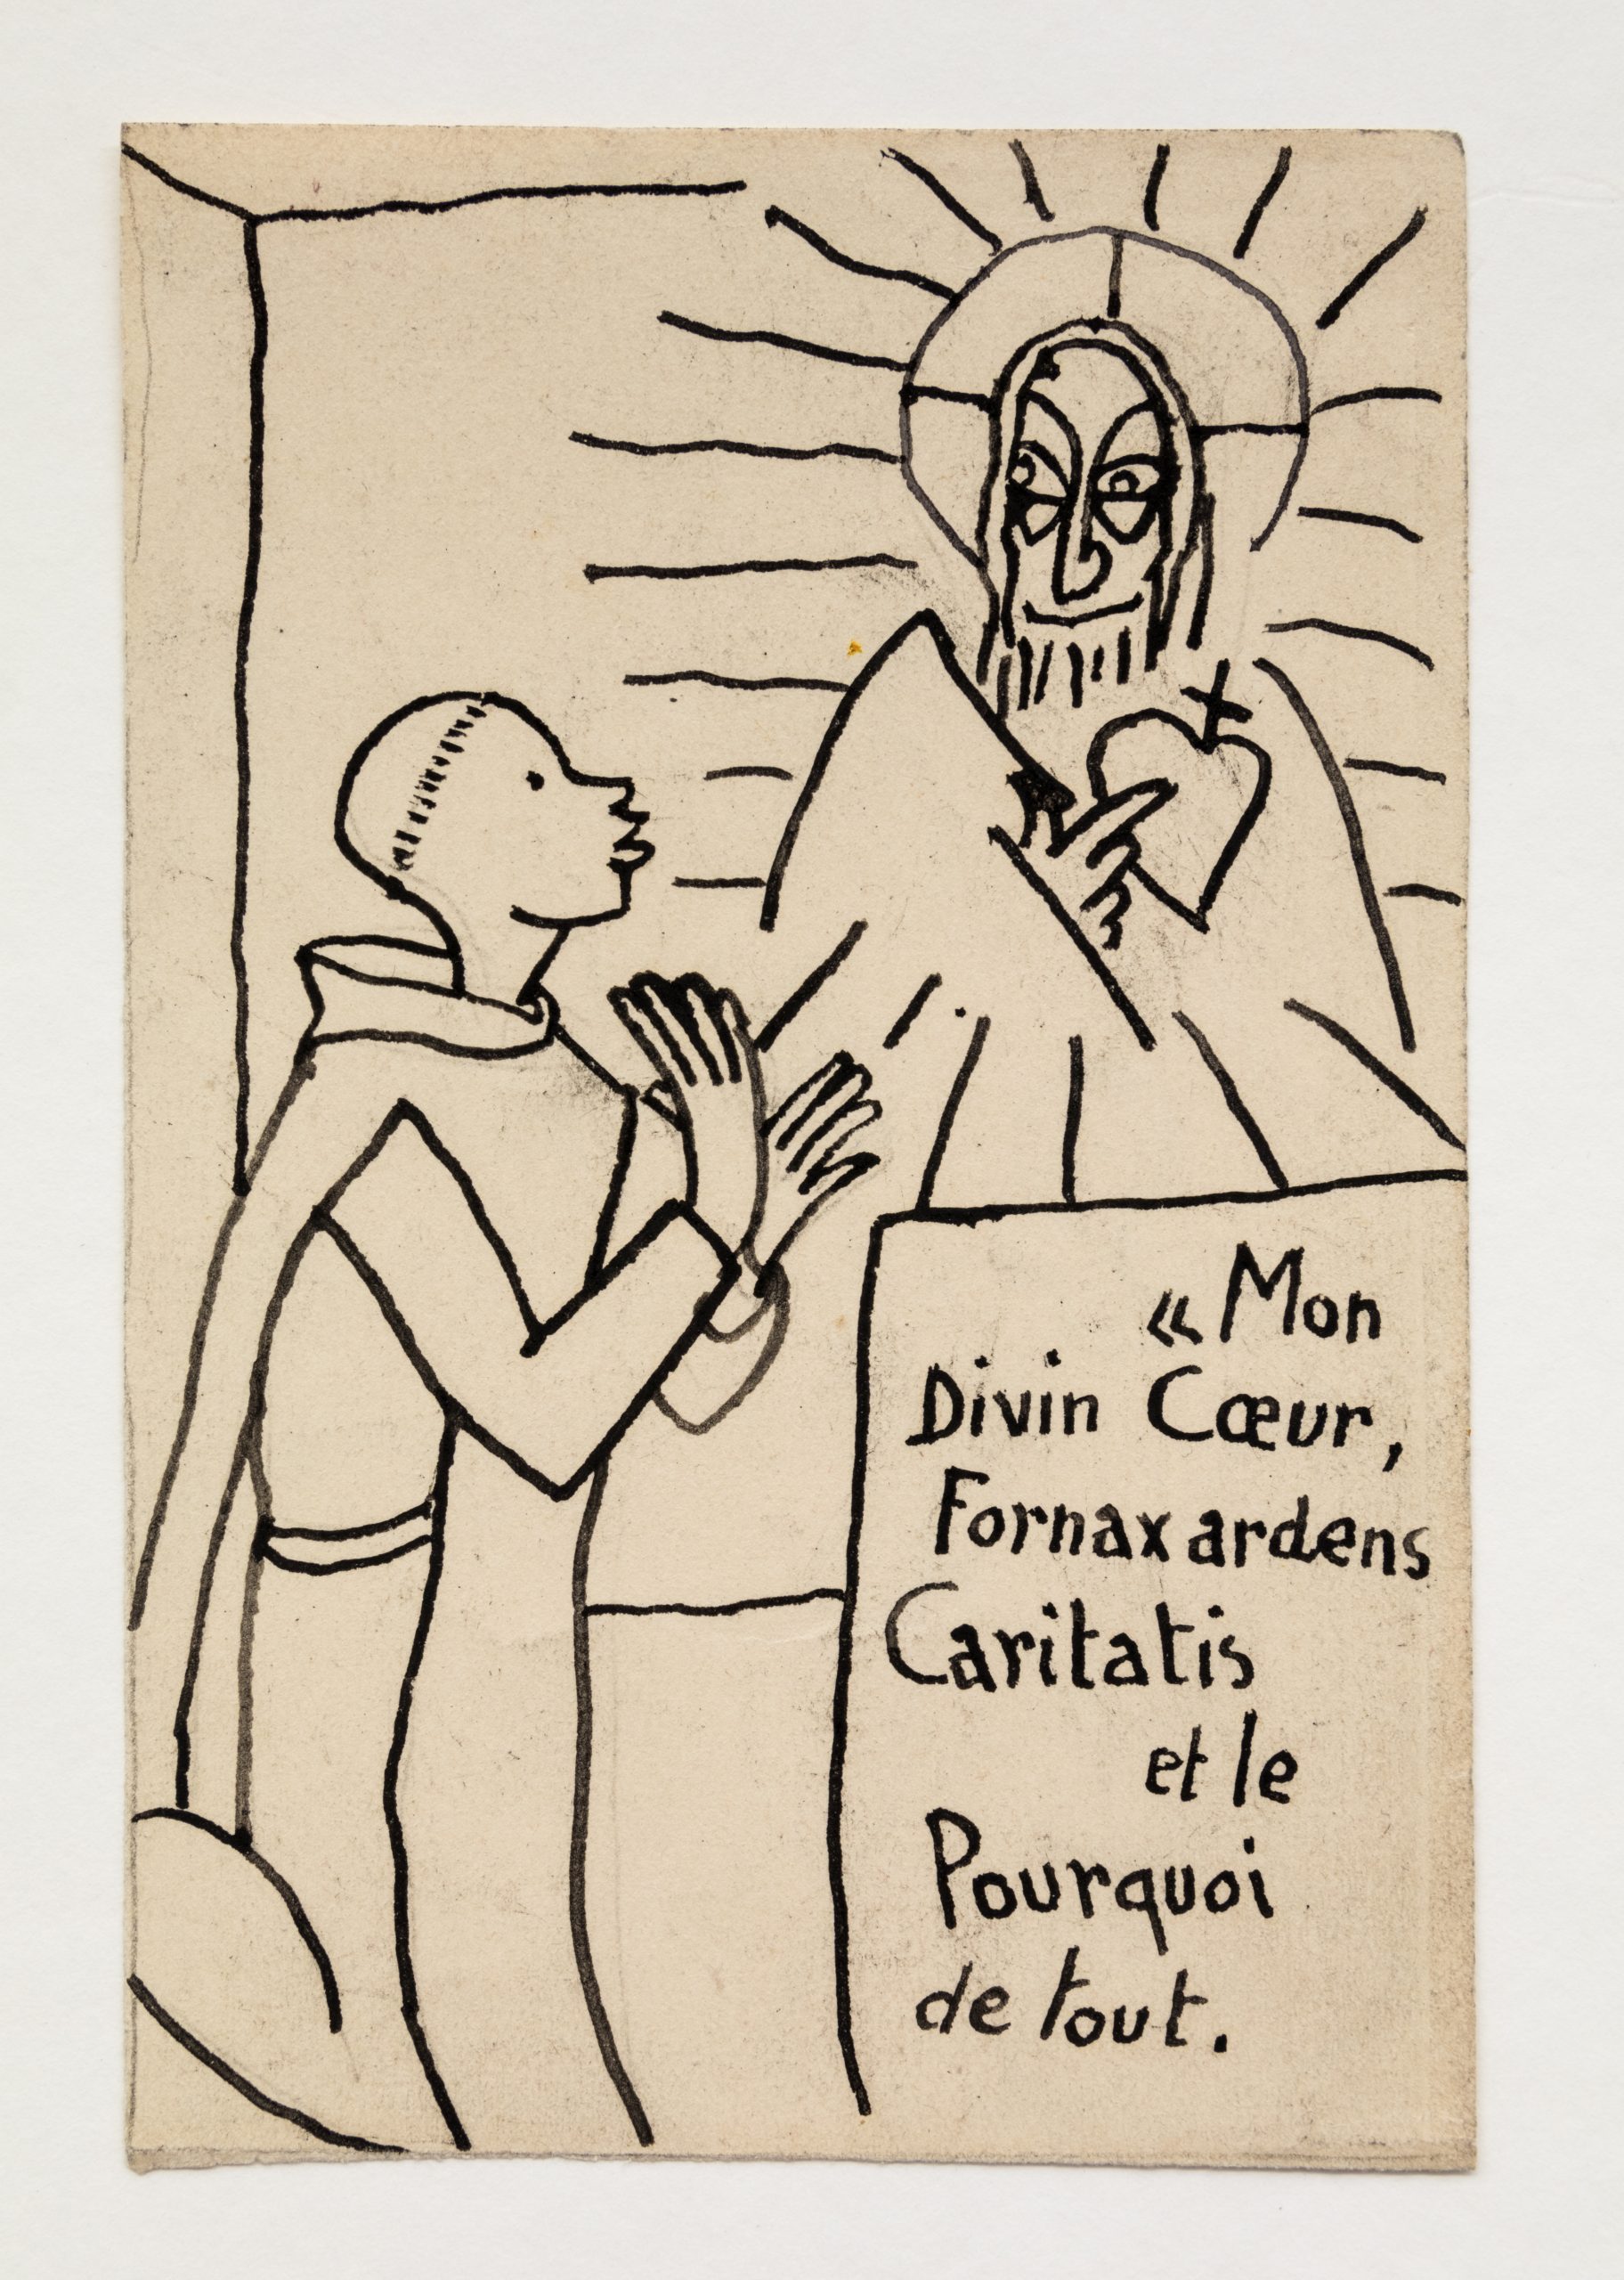 « Mon
Divin Cœur,
Fornax ardens
Caritatis
et le
Pourquoi
de tout.